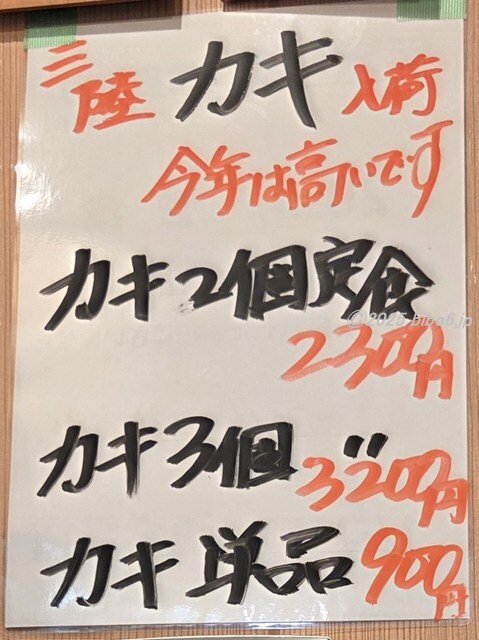 三陸 カキ 入荷
今年は高いです
カキ2個定食
2300円
カキ3個 〃 3200円
カキ単品 900円
©2025 bibo6.jp